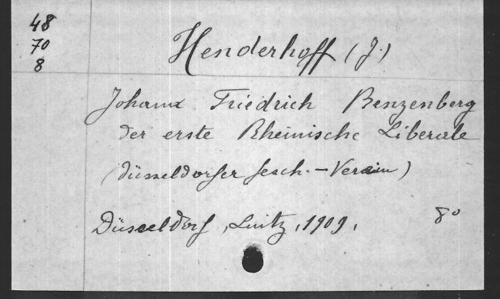 48
70
8
Henderhoff (J.)
Johann Friedrich Benzenberg
Der erste Rheinische Liberale
(Düsseldorfer Gesch.-Verein)
Düsseldorf, Lintz, 1909. 8°